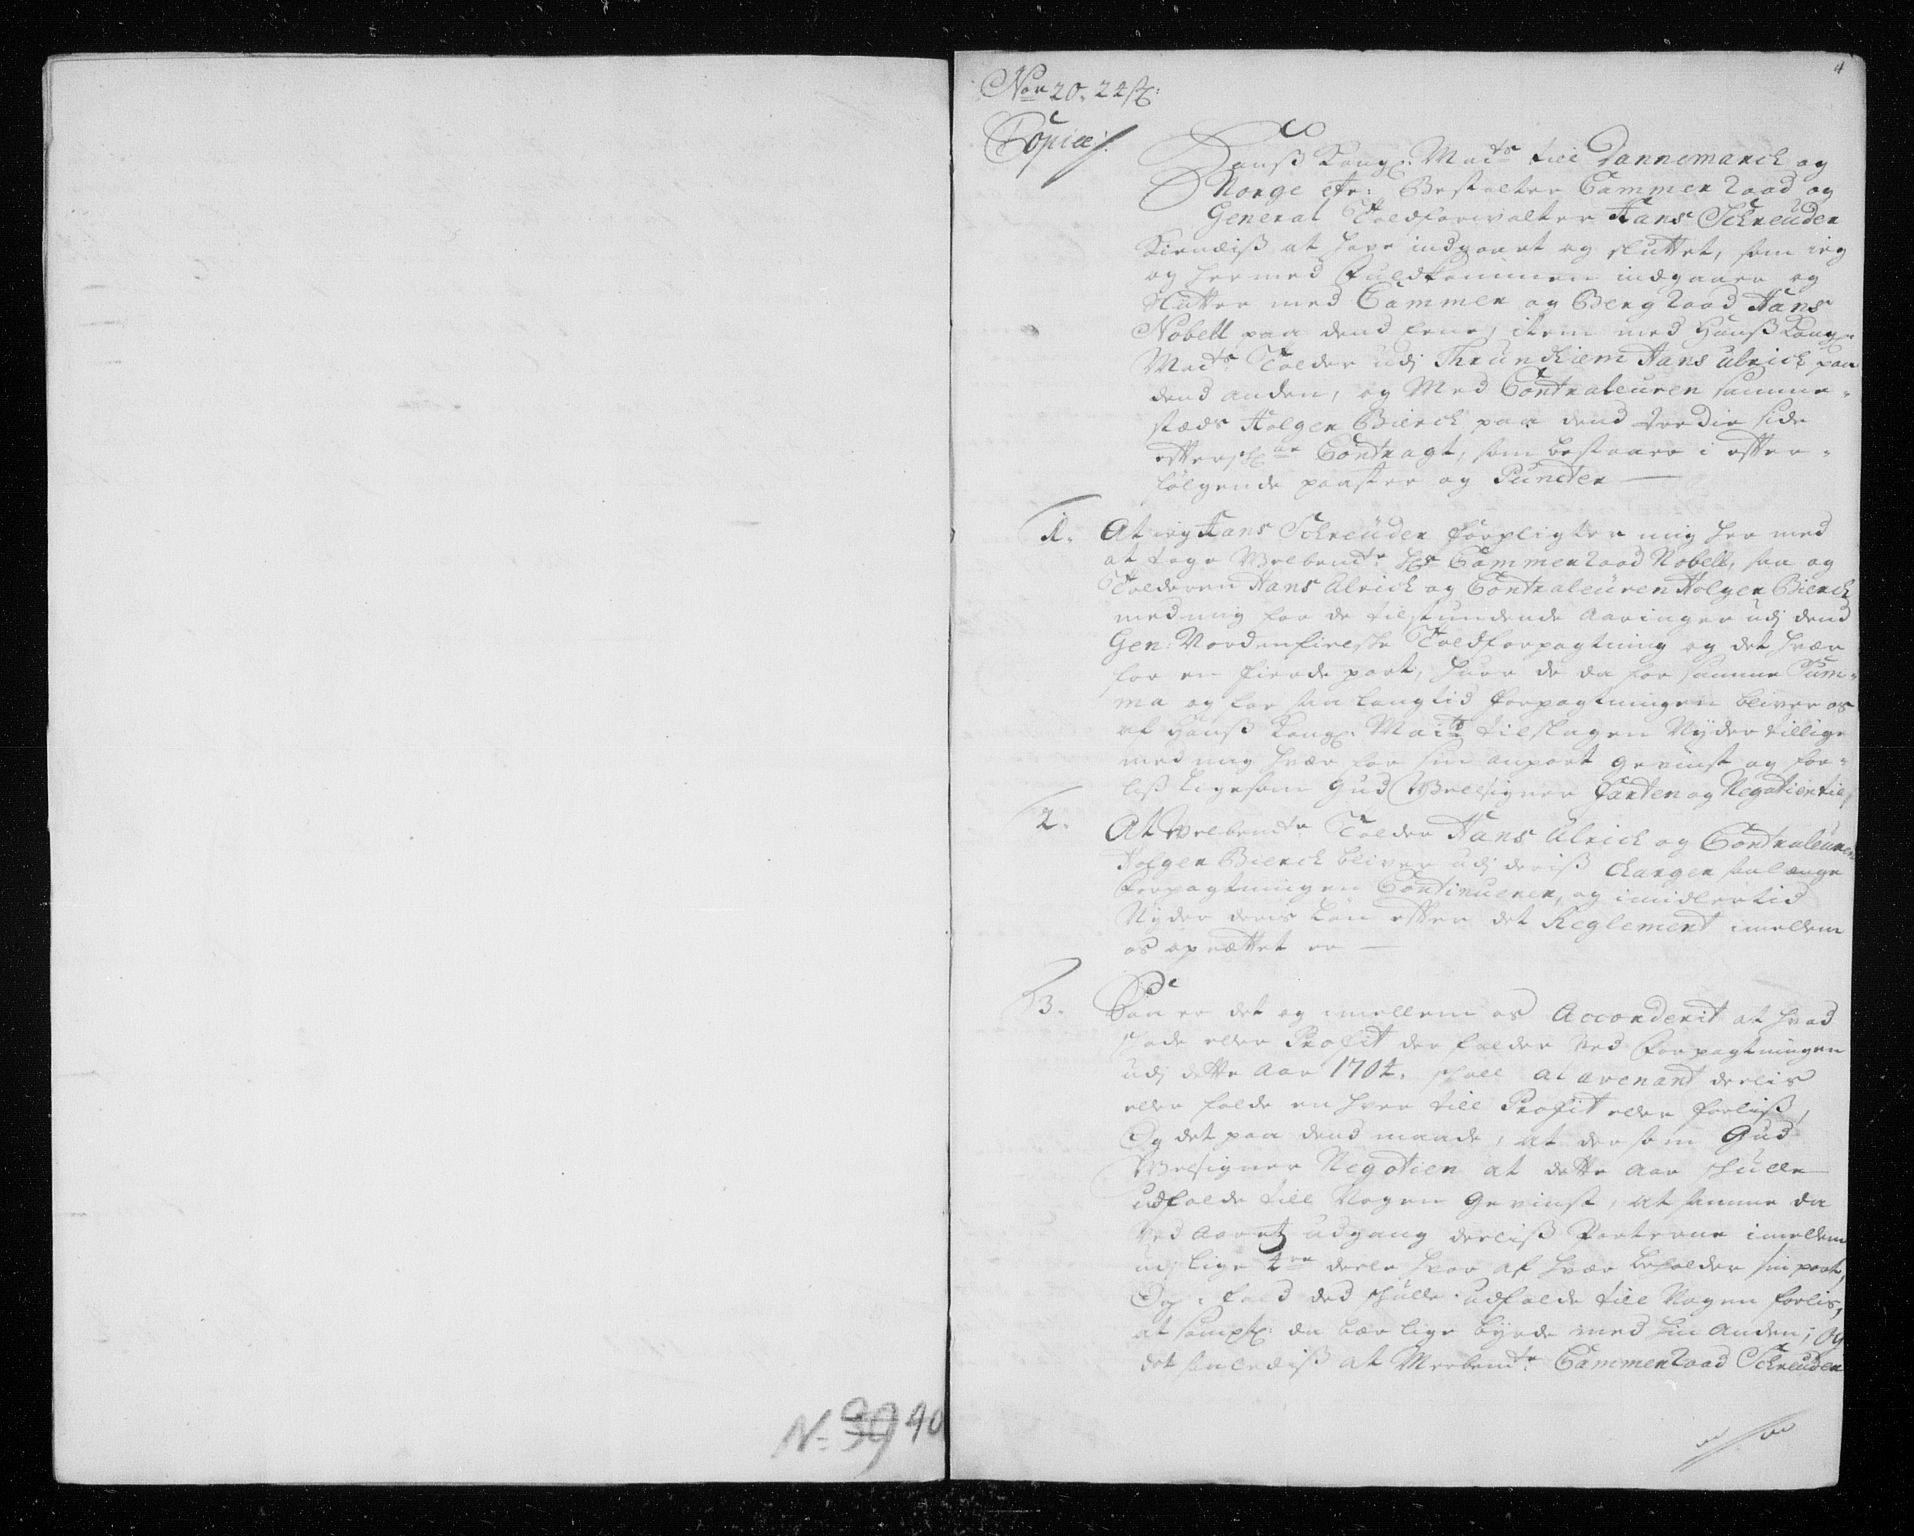 4
No 20. 24 sk:
Copia
Hanß Kongl. Mayts till Dannemarck og
Norge etc: Bestalter Cammer Raad og
General Toldforvalter Hans Schreüder
Kiendiß at have indgaaet og sluttet, som ieg
og hermed fuldkommen indgaar og
slutter med Cammer og Berg Raad Hans
Nobell paa dend eene, item med Hanß Kongl.
Mayts Tolder udj Thrundhiem Hans Ulrich paa
dend anden, og Med Contraleuren samme-
stæds Holger Bierck paa dend tredie side
efterskrne Contragt, som bestaar i efter-
følgende poster og Puncter
1. At ieg Hans Schreüder forpligter mig her med
at tage Welbemte Hr Cammer Raad Nobell, saa og
Tolderen Hans Ulrich og Contraleüren Holger Bierck
med mig for de tilstundende aaringer udj dend
Gen: Nordenfielske Toldforpagtning og det hver
for en fierde part, huor de da for samme Sum-
ma og for saa lang tid forpagtningen bliver os
af Hanß Kongl. Mayts tilslagen Nyder tillige
med mig hver for sin anpart gevinst og for-
liß ligesom Gud Velsigner farten og Negotien til
2. At Welbemte Tolder Hans Ulrich og Contraleuren
Holger Bierck bliver udj deris Charger saalænge
forpagtningen Continuerer, og imidlertid
Nyder deris løn efter det Reglement imellem
os oprettet er
3. Saa er det og imellem os Accorderit at hvad
skade eller Profit der falder ved forpagtningen
udj dette Aar 1704. skall al avenant deelis
eller falde en hver till Profit eller forliß,
Og det paa dend maade, at dersom Gud
Velsigner Negotien at dette Aar skulle
udfalde till Nogen Gevinst, at samme da
ved Aaretz udgang deeliß Parterne imellem
udj lige 4re deele hvor af hver beholder sin part,
Og i fald ded skulle udfalde till Nogen forlis,
at sampt: da bær lige byrde med hin Anden; Og
det saaledeß at Meerbemte Cammer Raad Schreuder
N= 39 40